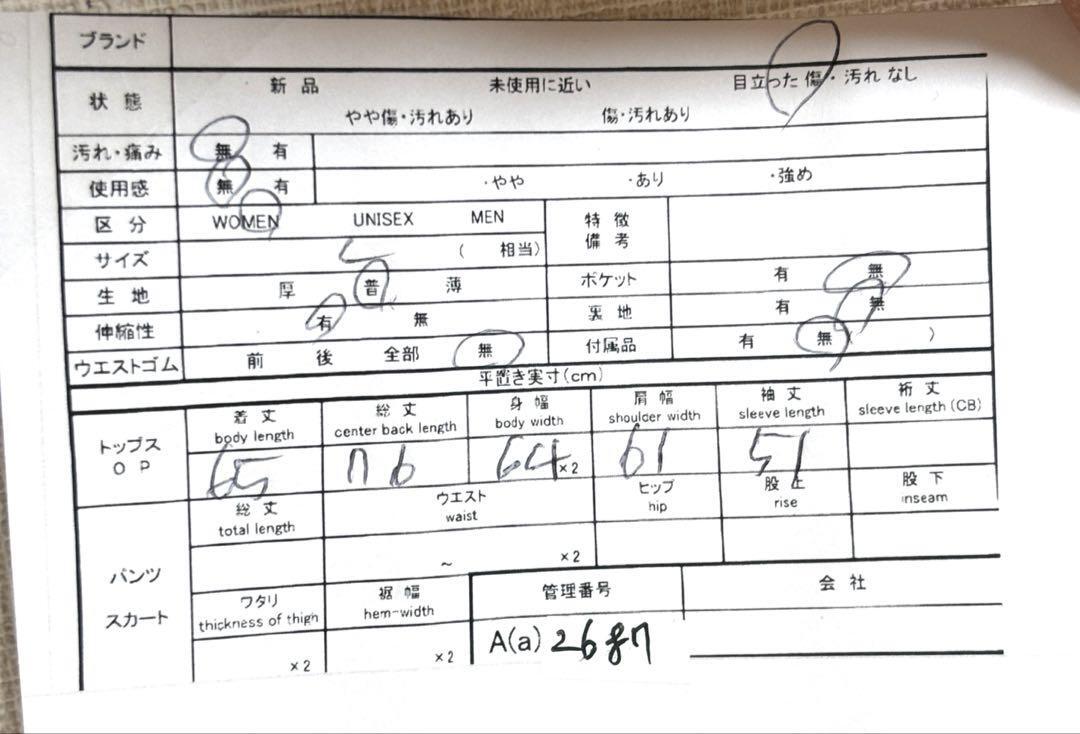 ブランド
状態 新品 未使用に近い 目立った傷・汚れなし
やや傷・汚れあり 傷・汚れあり
汚れ・痛み 無 有
使用感 無 有 ・やや ・あり ・強め
区分 WOMEN UNISEX MEN 特徴
備考
サイズ L ( 相当)
生地 厚 普 薄 ポケット 有 無
伸縮性 有 無 裏地 有 無
ウエストゴム 前 後 全部 無 付属品 有 無( )
平置き実寸(cm)
トップス
OP
着丈 総丈 身幅 肩幅 袖丈 裄丈
body length center back length body width shoulder width sleeve length sleeve length(CB)
65 76 64×2 61 51
パンツ
スカート
総丈 ウエスト ヒップ 股上 股下
total length waist hip rise inseam
~ ×2
ワタリ 裾幅 管理番号 会社
thickness of thigh hem-width
×2 ×2 A(a) 2687